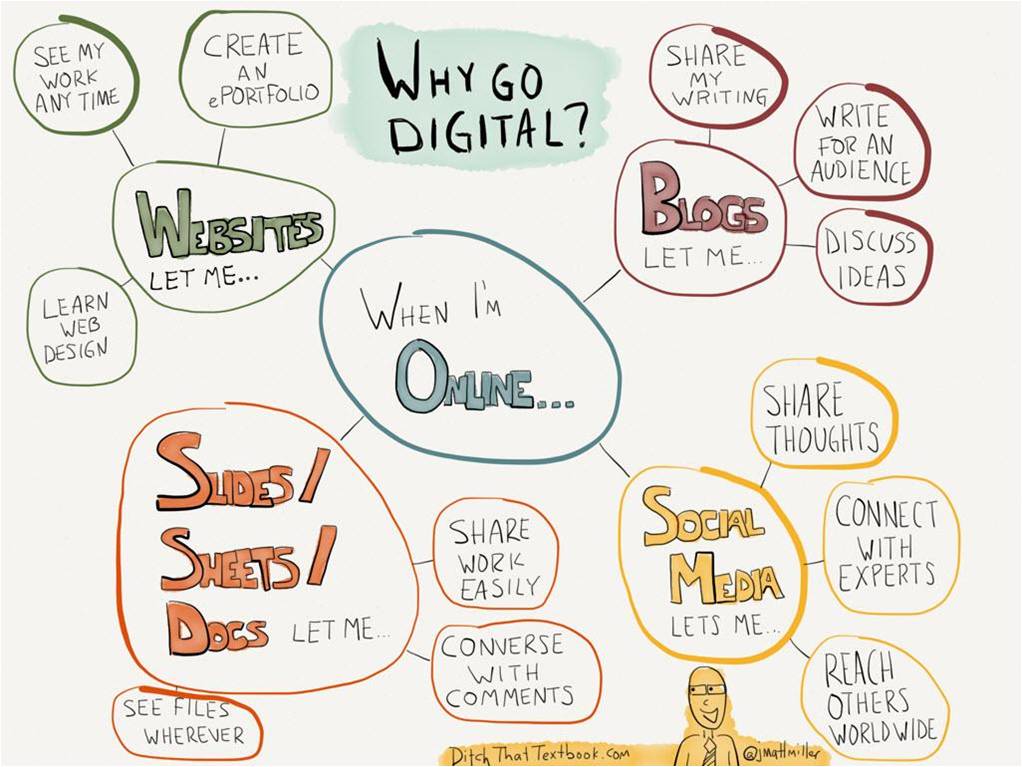 WHY GO
DIGITAL?
SEE MY
WORK
ANY TIME
CREATE
AN
ePORTFOLIO
WEBSITES
LET ME...
LEARN
WEB
DESIGN
SHARE
MY
WRITING
WRITE
FOR AN
AUDIENCE
BLOGS
LET ME...
DISCUSS
IDEAS
WHEN I'M
ONLINE...
SLIDES/
SHEETS/
DOCS LET ME...
SHARE
WORK
EASILY
CONVERSE
WITH
COMMENTS
SEE FILES
WHEREVER
SHARE
THOUGHTS
SOCIAL
MEDIA
LETS ME...
CONNECT
WITH
EXPERTS
REACH
OTHERS
WORLDWIDE
DitchThatTextbook.com
@jmattmiller